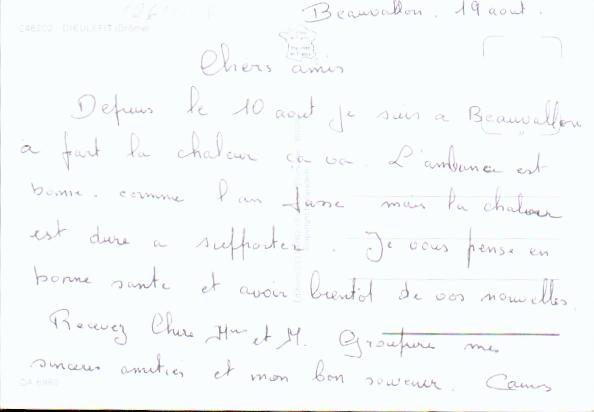 246202 - DIEULEFIT (Drôme)
Beauvallon. 19 aout.
Chers amis
Depuis le 10 aout je suis a Beauvallon
a part la chaleur ça va. L'ambance est
bonne. comme l'an passe mais la chaleur
est dure a supporter. Je vous pense en
bonne sante et avoir bientôt de vos nouvelles.
Recevez Chere Mme et M. mes
sinceres amities et mon bon souvenir.